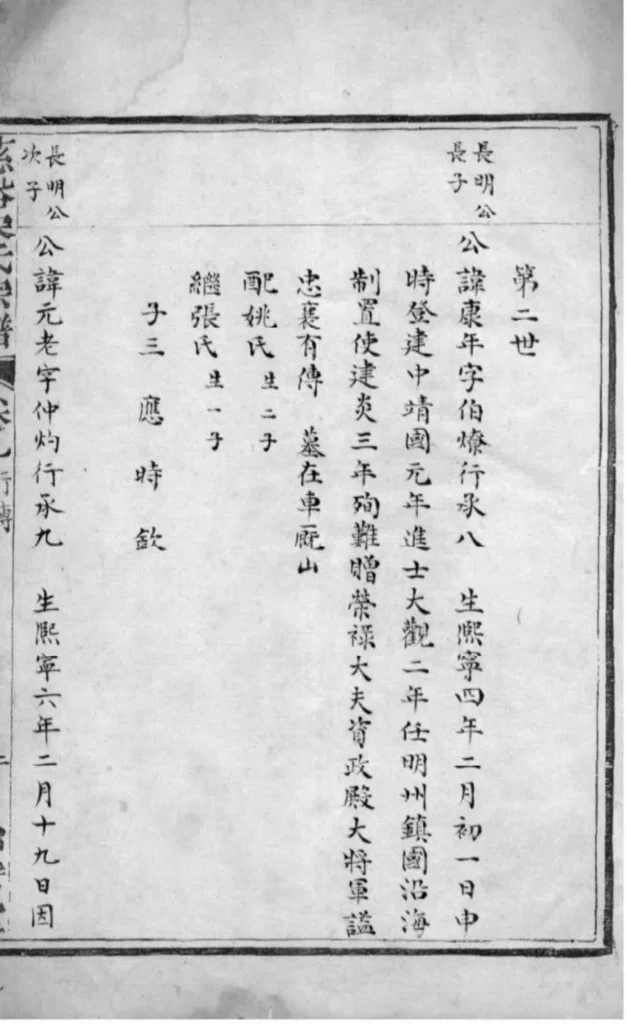 第二世
長明公
長子
公諱康年字伯燎行承八 生熙寧四年二月初一日申
時登建中靖國元年進士大觀二年任明州鎮國沿海
制置使建炎三年殉難贈榮祿大夫資政殿大將軍謚
忠襄有傳 墓在車厩山
配姚氏 生二子
繼張氏 生一子
子三 應 時 歛
長明公
次子
公諱元老字仲灼行承九 生熙寧六年二月十九日因
氏宗譜 行傳